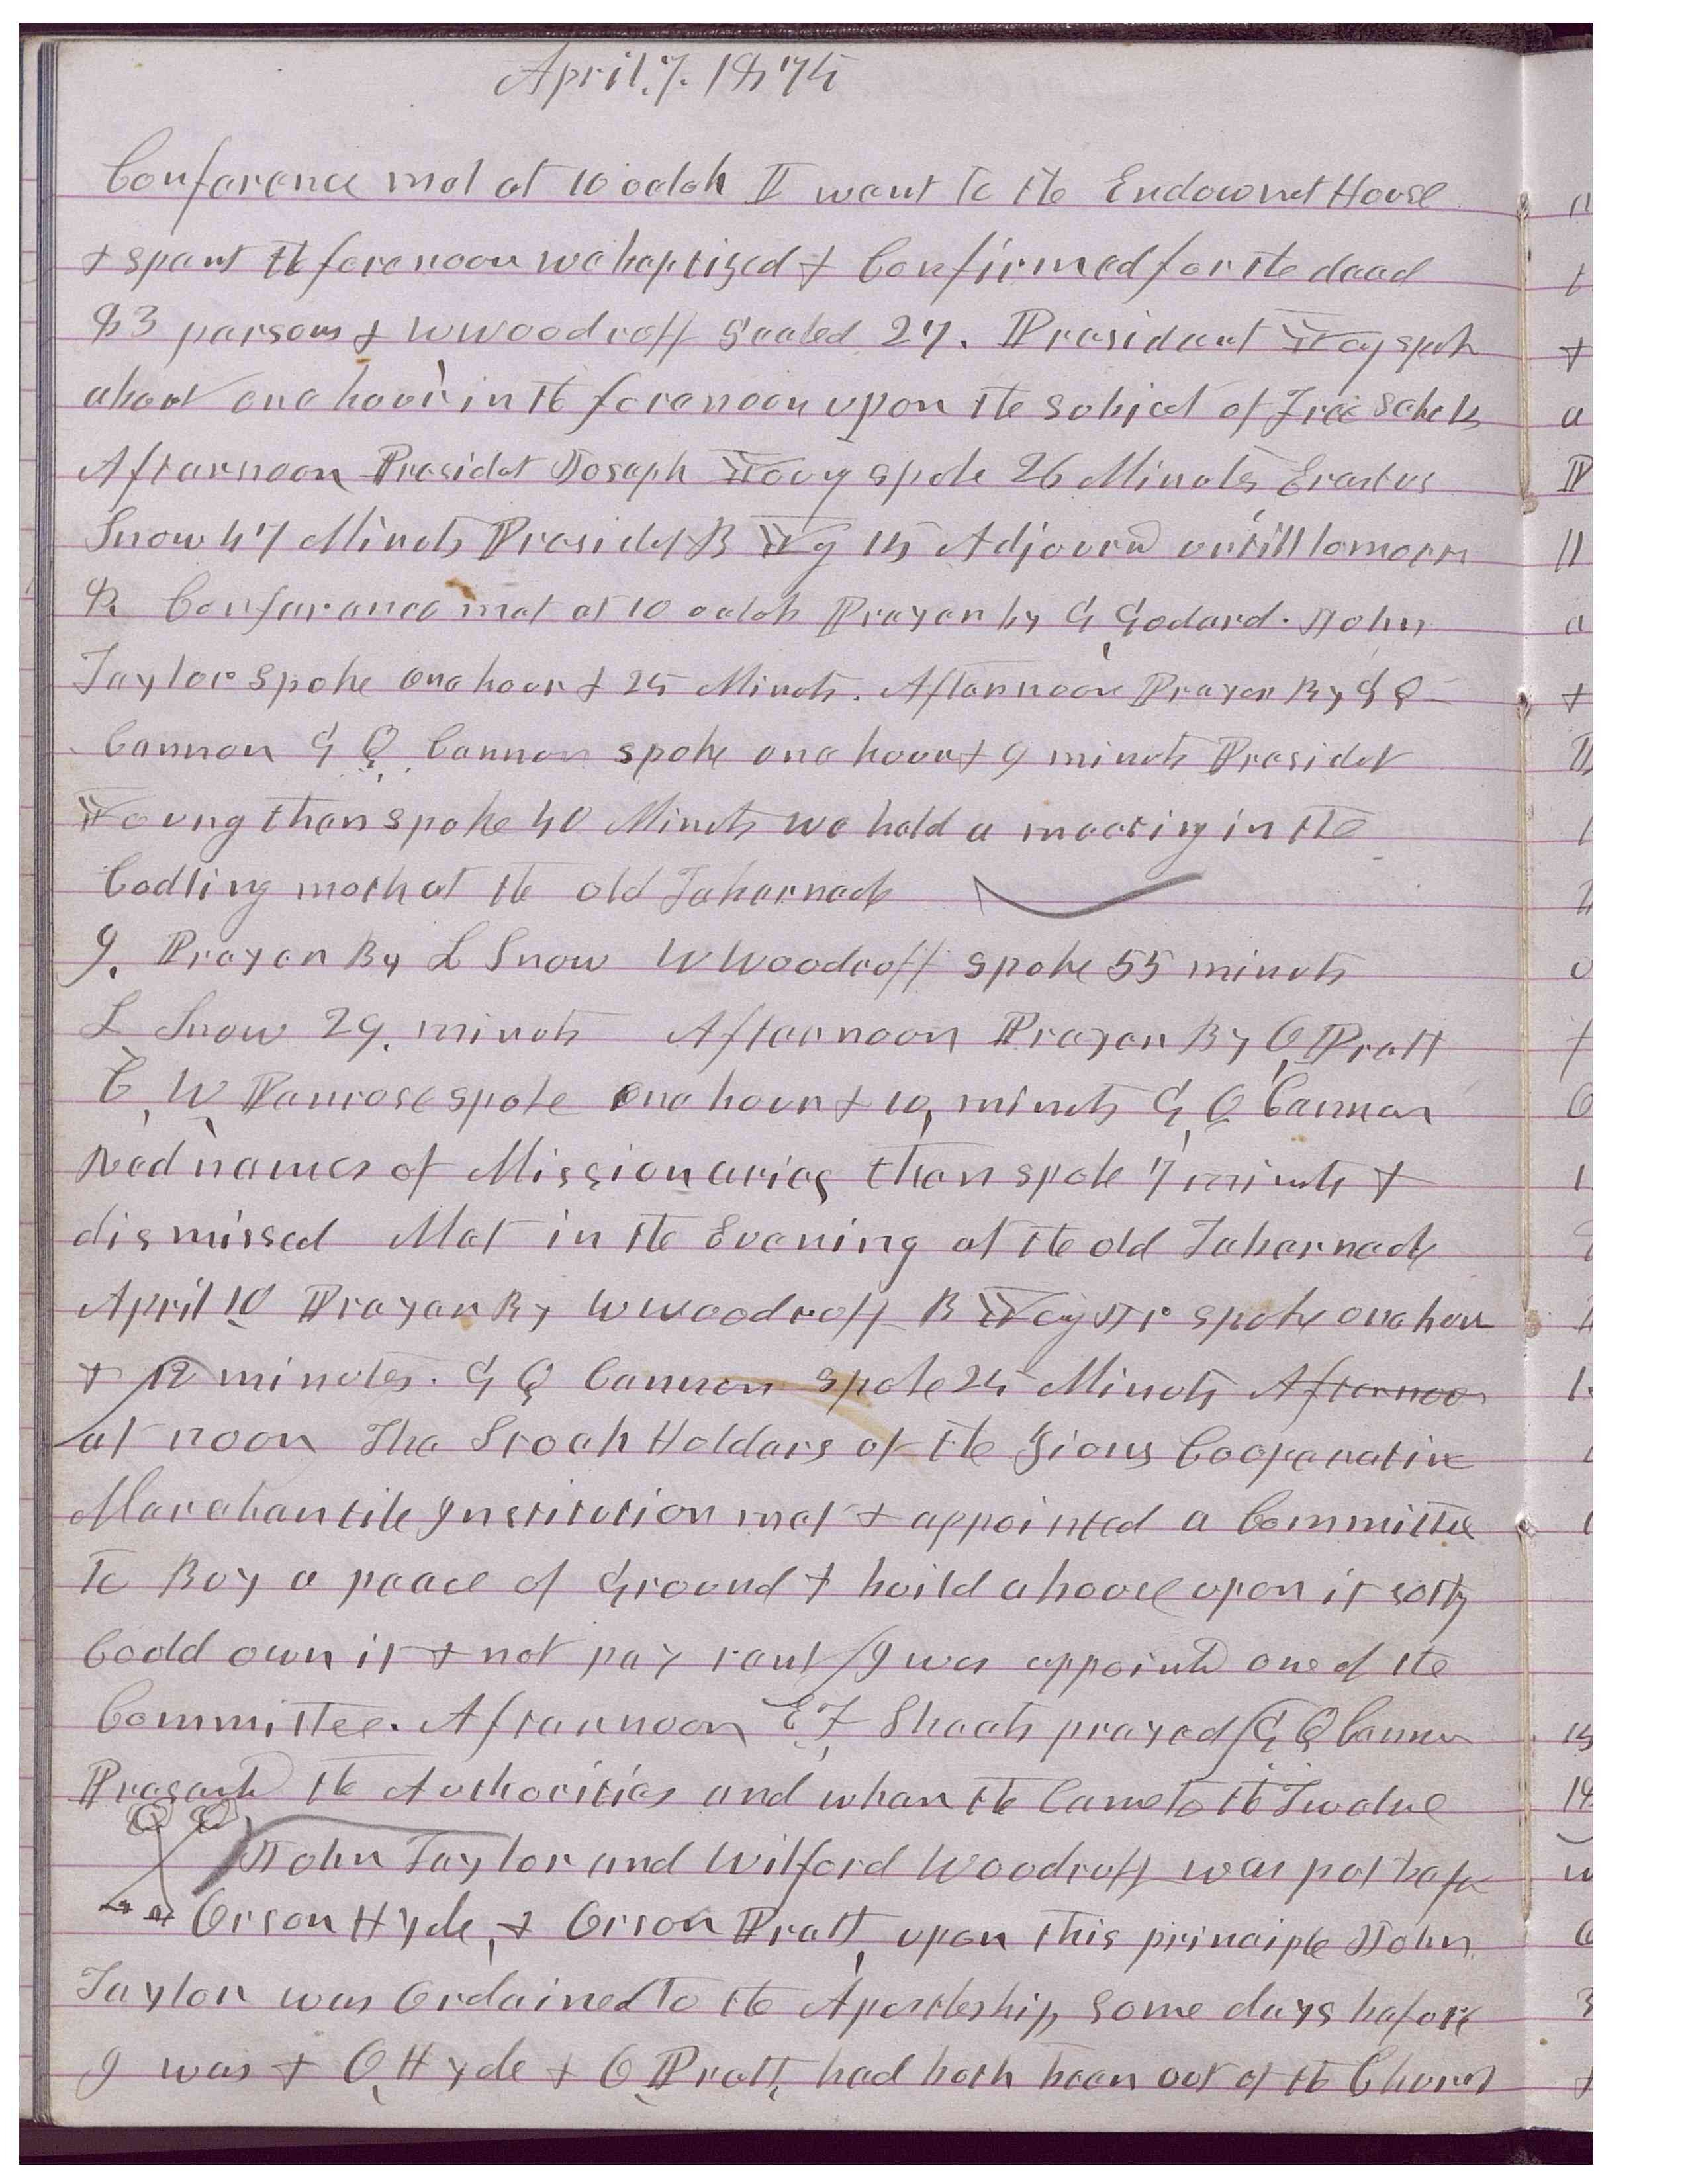 April. 7. 1875
Conference met at 10 oclok I went to the Endowmet House
& spent the forenoon we baptized & Confirmed for the dead
83 persons & W Woodruff Sealed 27. President Young spok
about one hour in the forenoon upon the subject of Free Schols
Afternoon Presidet Joseph Young spoke 26 Minuts Erastus
Snow 47 Minuts Presidet B Yg 15 Adjourd untill tomorrow
8. Conference met at 10 oclok Prayer by G Godard. John
Taylor spoke one hour & 25 Minuts. Afternoon Prayer By G Q
Cannon G Q. Cannon spoke one hour & 9 minuts Presidet
Young then spoke 40 Minuts we held a meeting in the
Codling moth at the old Tabernacle
9. Prayer By L Snow W Woodruff spoke 55 minuts
L Snow 29. minuts Afternoon Prayer By O Pratt
C, W, Penrose spoke one hour & 10, minuts G, Q Cannon
Red names of Missionaries then spoke 7 minuts &
dismissed Met in the Evening at the old Tabernacle
April 10 Prayer By W Woodruff B Young Jr spoke one hour
& 12 minutes. G Q Cannon spoke 25 Minuts Afternoon
at noon The Stock Holders of the Zions Cooperative
Merchantile Institution met & appointed a Committee
to Buy a peace of Ground & build a house upon it so they
Could own it & not pay rent / I was appointd one of the
Committee. Afternoon E F Sheets prayed / G Q Cannon
Presentd the Authorities and when the Came to the Twelve
John Taylor and Wilford Woodruff was put before
Orson Hyde, & Orson Pratt, upon this principle John
Taylor was Ordained to the Apostleship some days before
I was & O, Hyde & O Pratt, had both been out of the Church